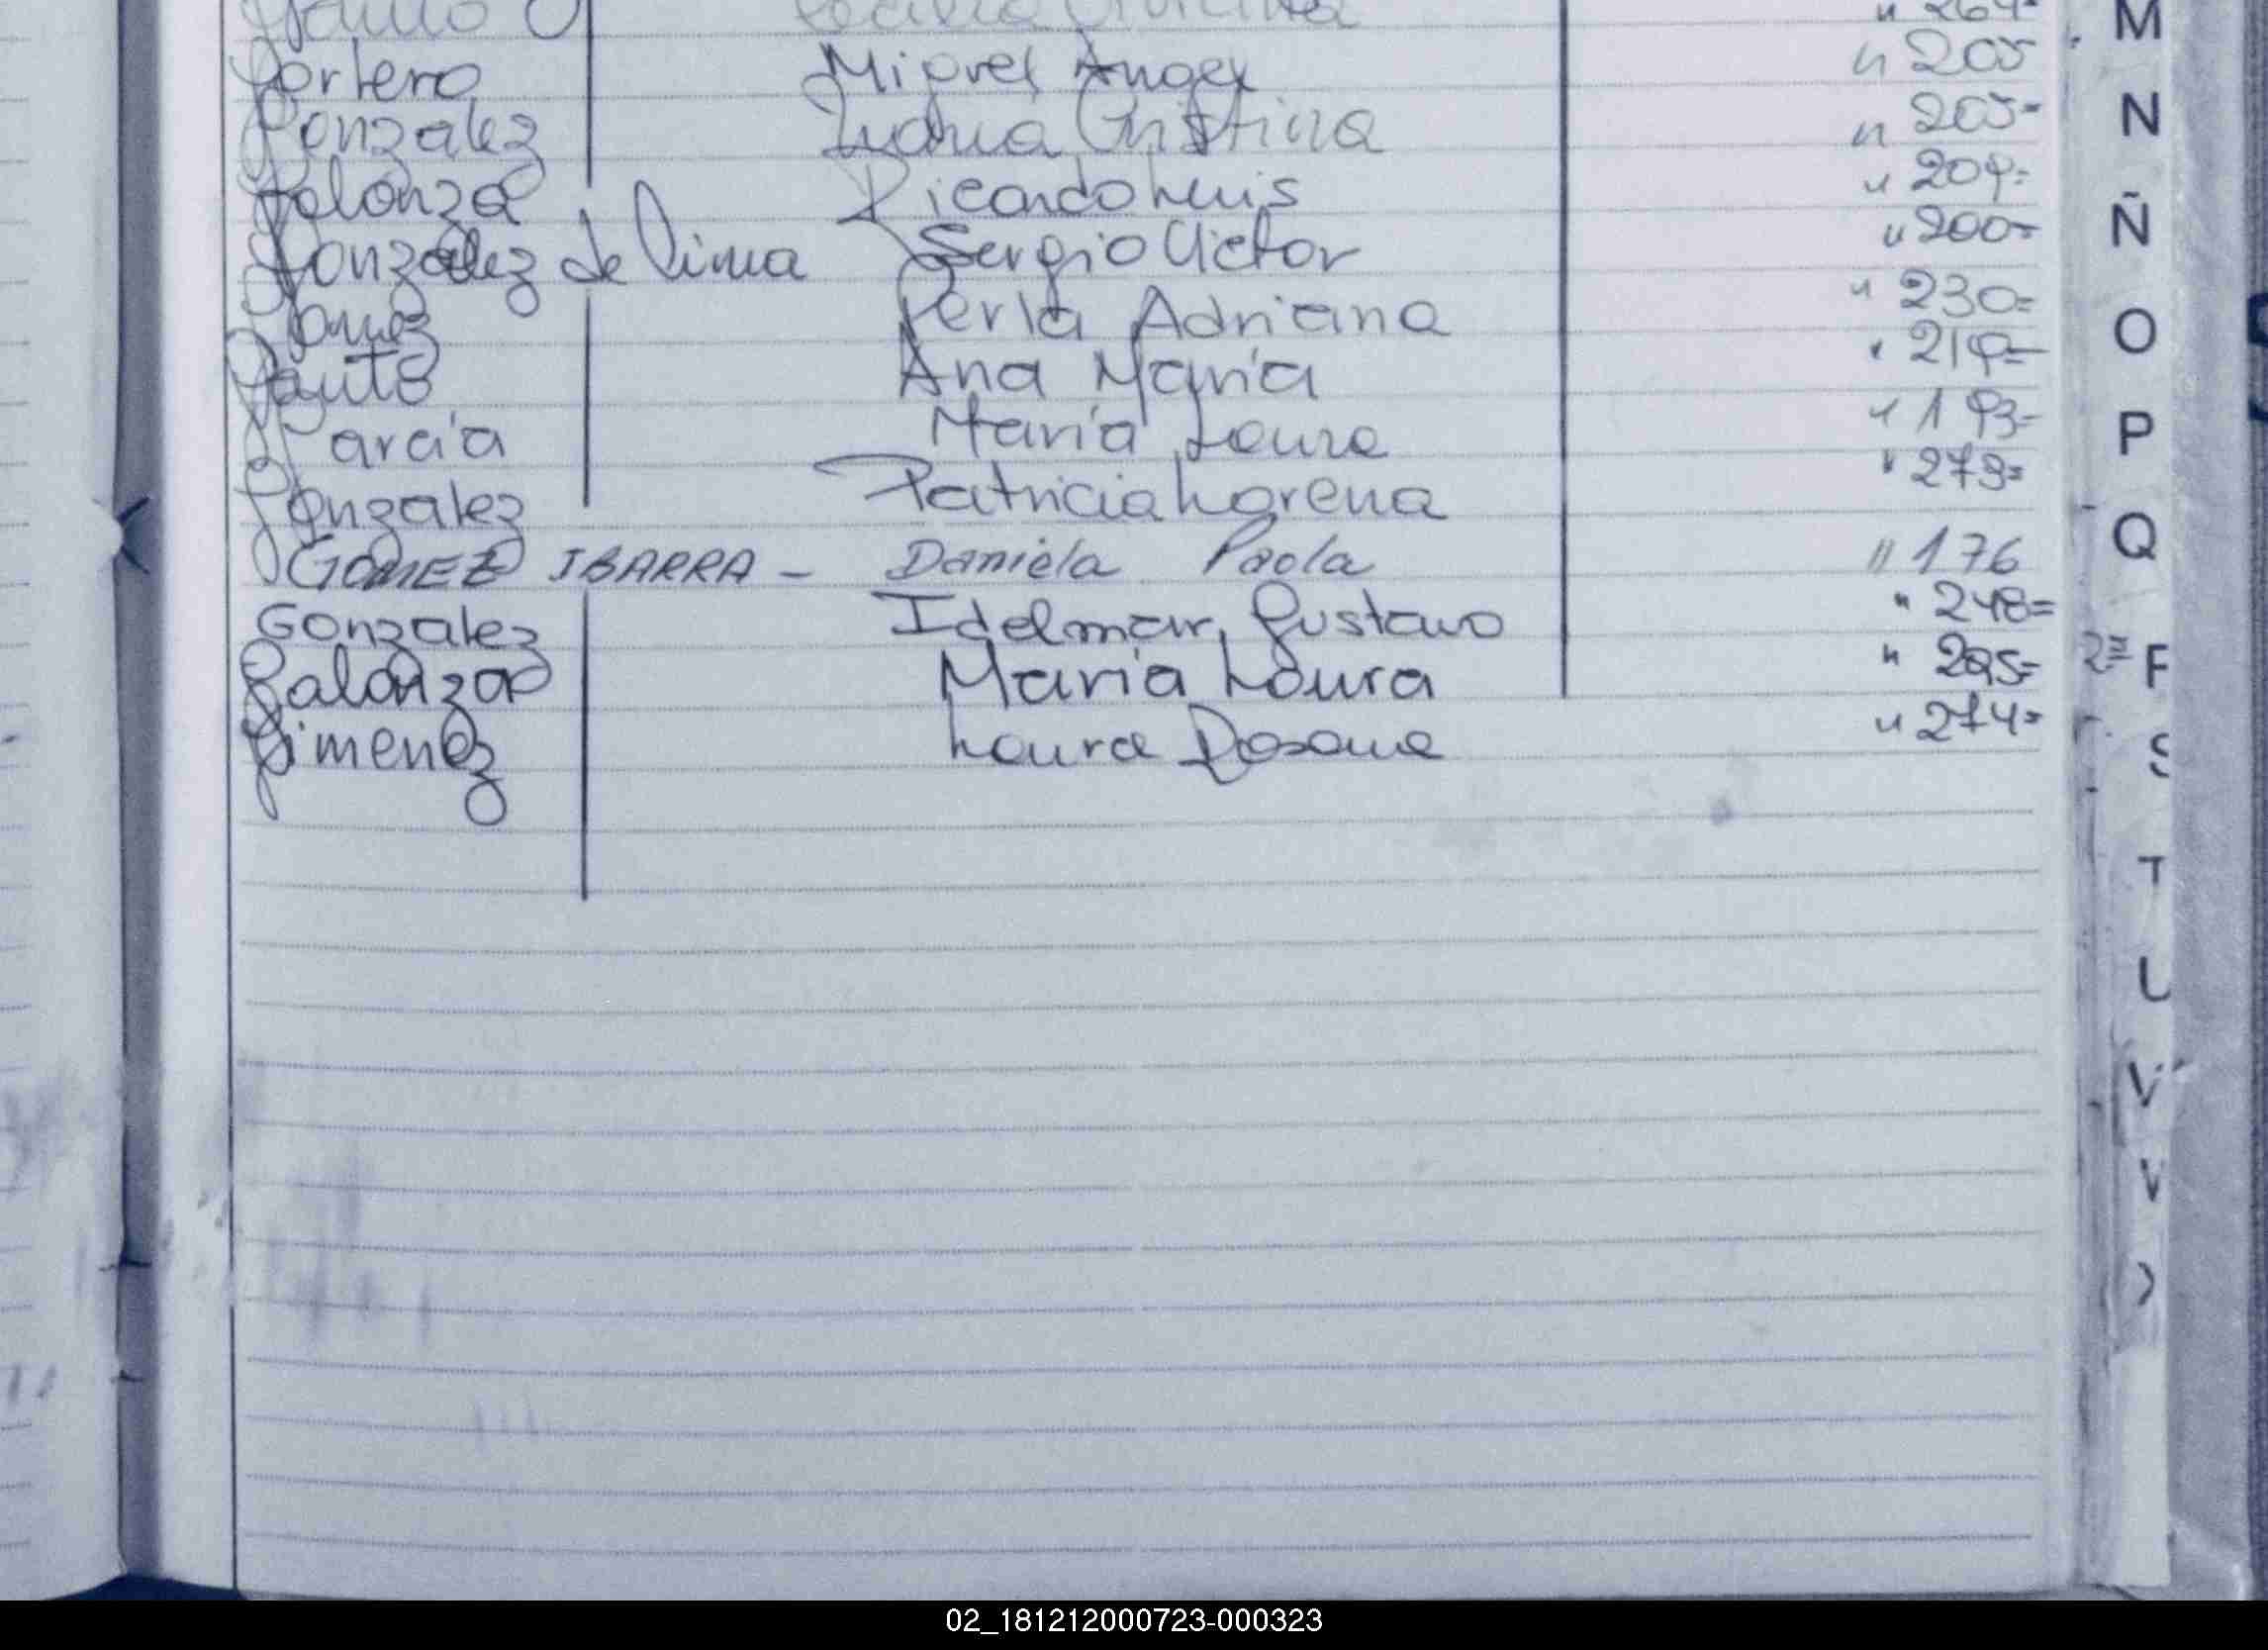 " 264=
Portero Miguel Angel " 205
Gonzalez Maria Cristina " 205=
Galonza Ricardo Luis " 209=
Gonzalez de Lima Sergio Victor " 200=
Gomez Perla Adriana " 230=
Gauto Ana María " 219=
Garcia María Laura " 193=
Gonzalez Patricia Lorena " 279=
GOMEZ IBARRA - Daniela Paola " 176
Gonzalez Idelmar, Gustavo " 248=
Galonza María Laura " 295=
Jimenez Laura Rosana " 274=
M
N
Ñ
O
P
Q
R
S
T
U
V
02_181212000723-000323